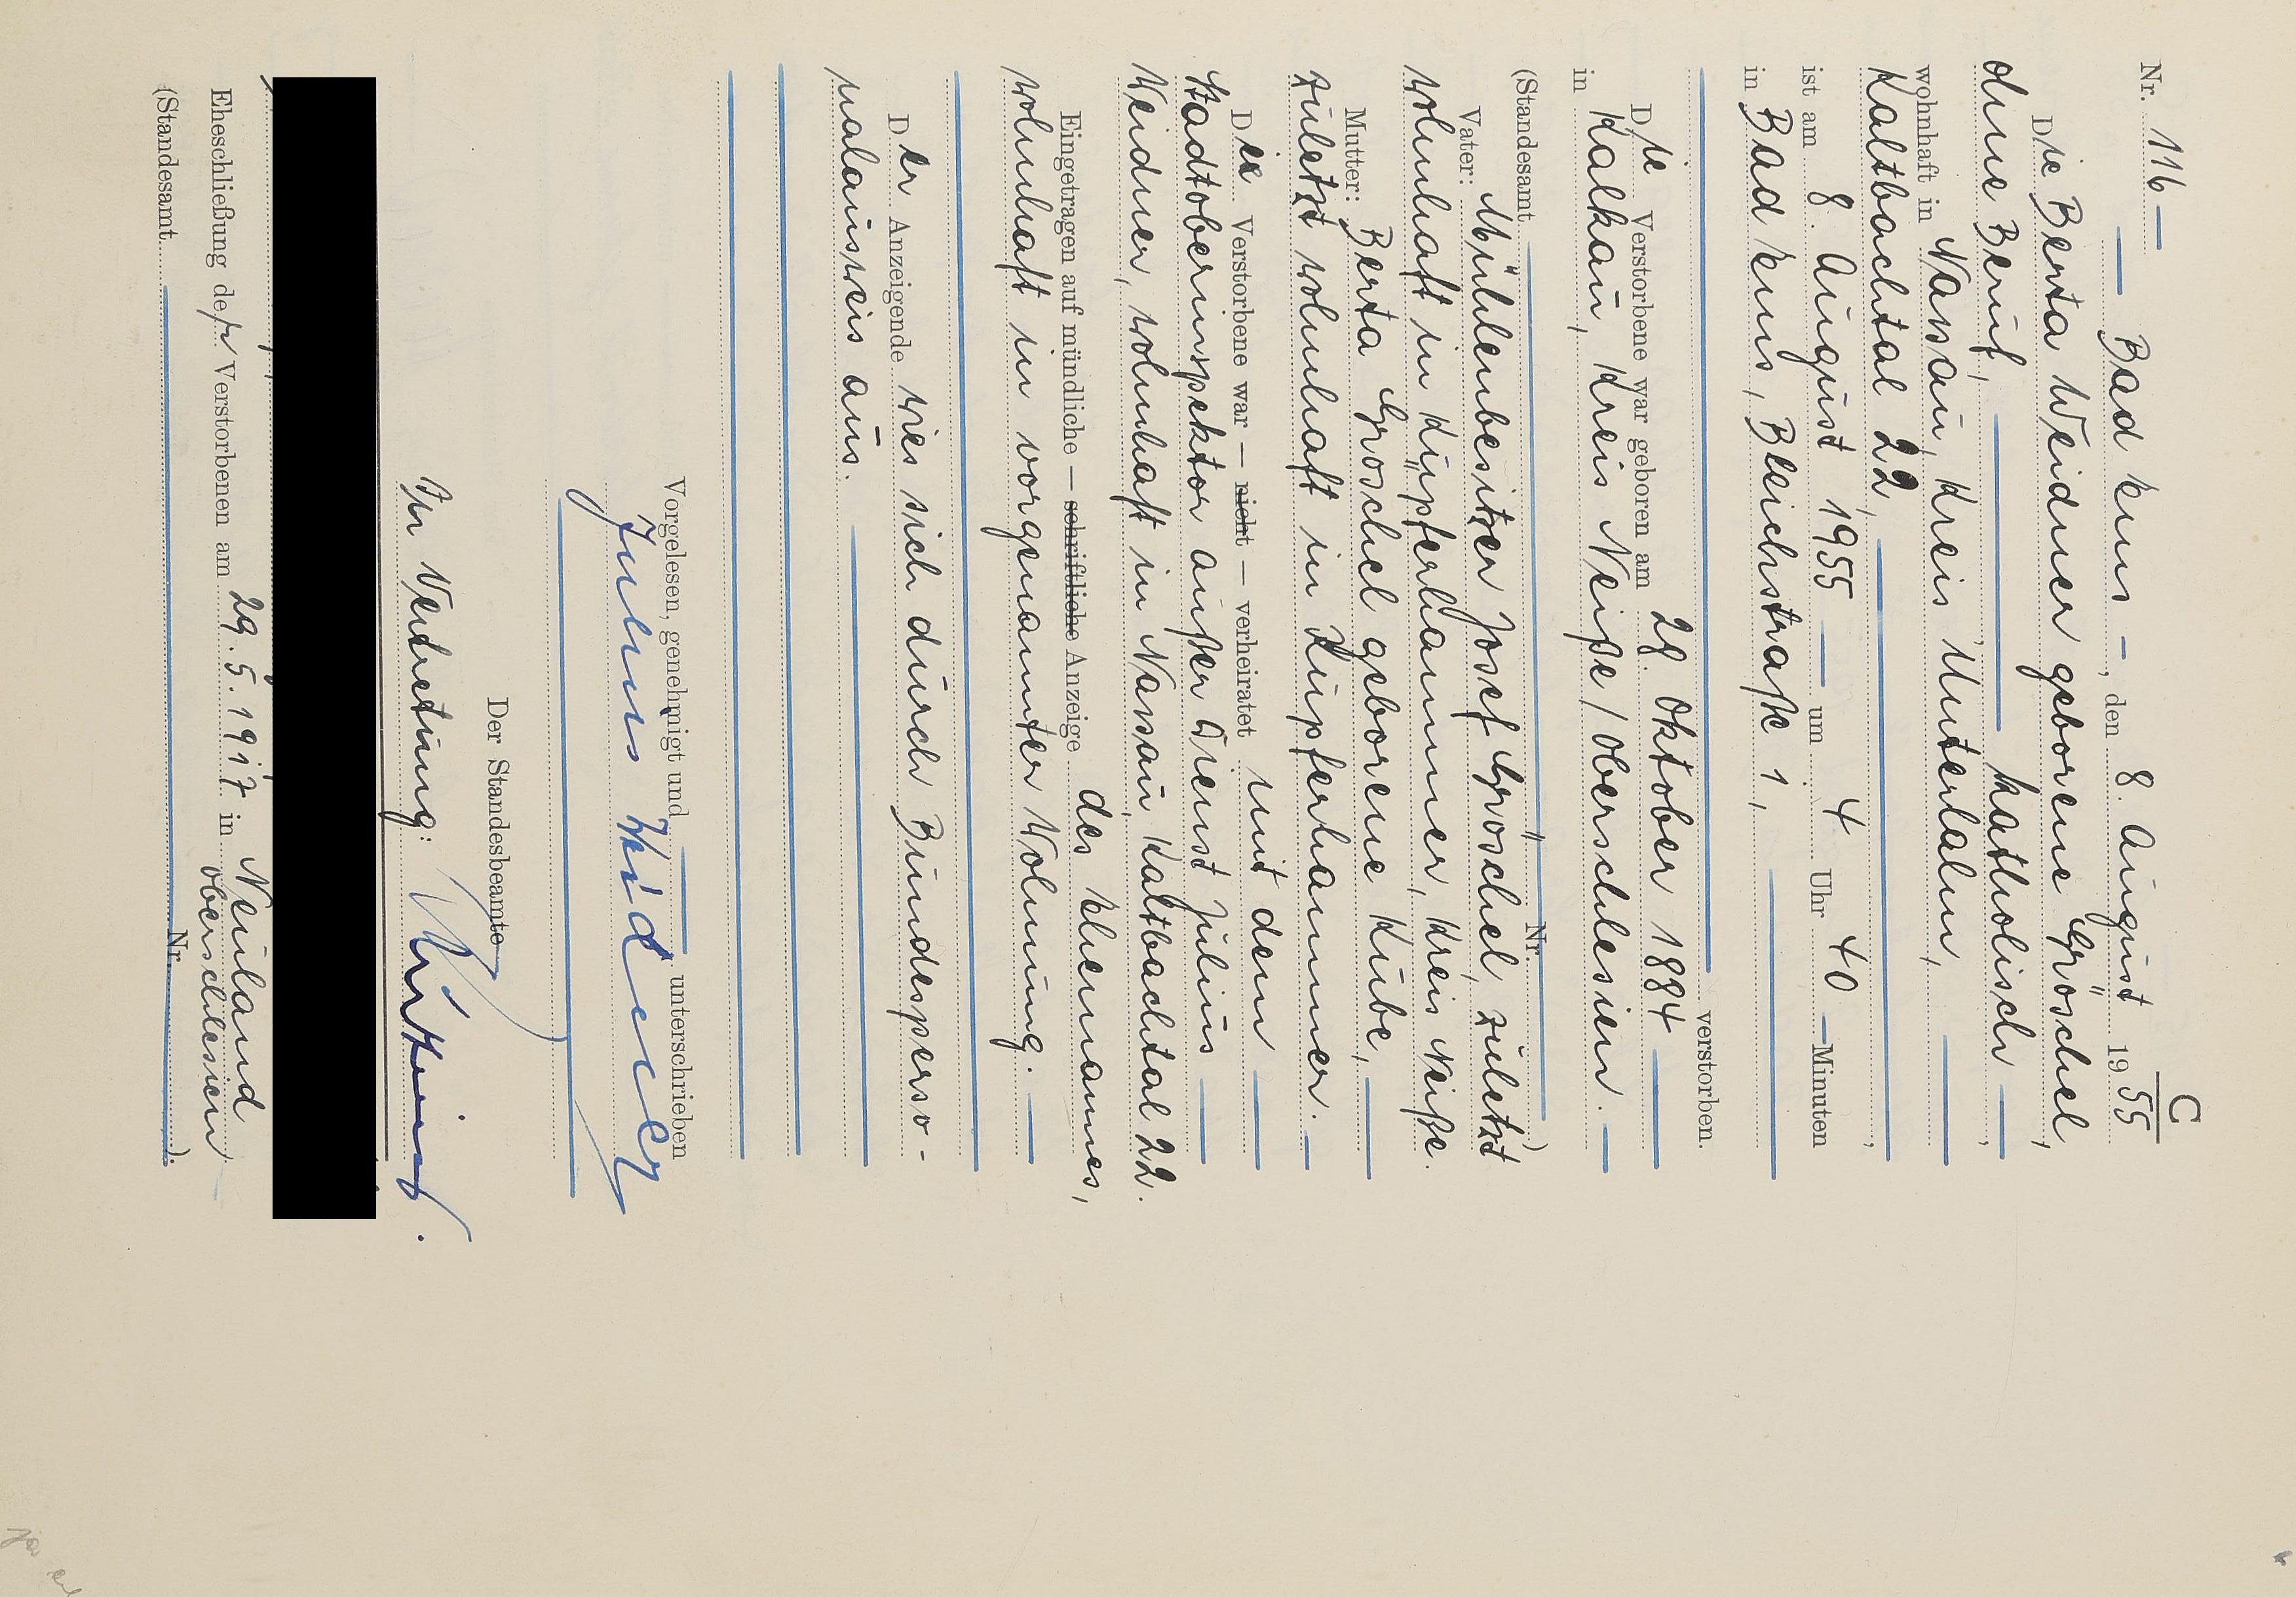 C
Nr. 116 —
— Bad Ems —, den 8. August 1955
Die Berta Weidner geborene Gröschel,
ohne Beruf, — katholisch —,
wohnhaft in Nassau, Kreis Unterlahn, —
Kaltbachtal 22, —,
ist am 8. August 1955 — um 4 Uhr 40 — Minuten
in Bad Ems, Bleichstraße 1, —
— verstorben.
Die Verstorbene war geboren am 28. Oktober 1884 —
in Kalkau, Kreis Neiße / Oberschlesien. —
(Standesamt — " — Nr. —)
Vater: Mühlenbesitzer Josef Gröschel, zuletzt
wohnhaft in Küpferhammer, Kreis Neiße.
Mutter: Berta Gröschel geborene Kube, —
zuletzt wohnhaft in Küpferhammer. —
Die Verstorbene war — nicht — verheiratet mit dem —
Stadtoberinspektor außer Dienst Julius —
Weidner, wohnhaft in Nassau, Kaltbachtal 22.
Eingetragen auf mündliche — schriftliche Anzeige des Ehemannes,
wohnhaft in vorgenannter Wohnung. —
Der Anzeigende wies sich durch Bundesperso-
nalausweis aus. —
Vorgelesen, genehmigt und — unterschrieben
Julius Weidner
Der Standesbeamte
In Vertretung:
Eheschließung der Verstorbenen am 29. 5. 1917 in Neuland
Oberschlesien
(Standesamt — Nr. —).